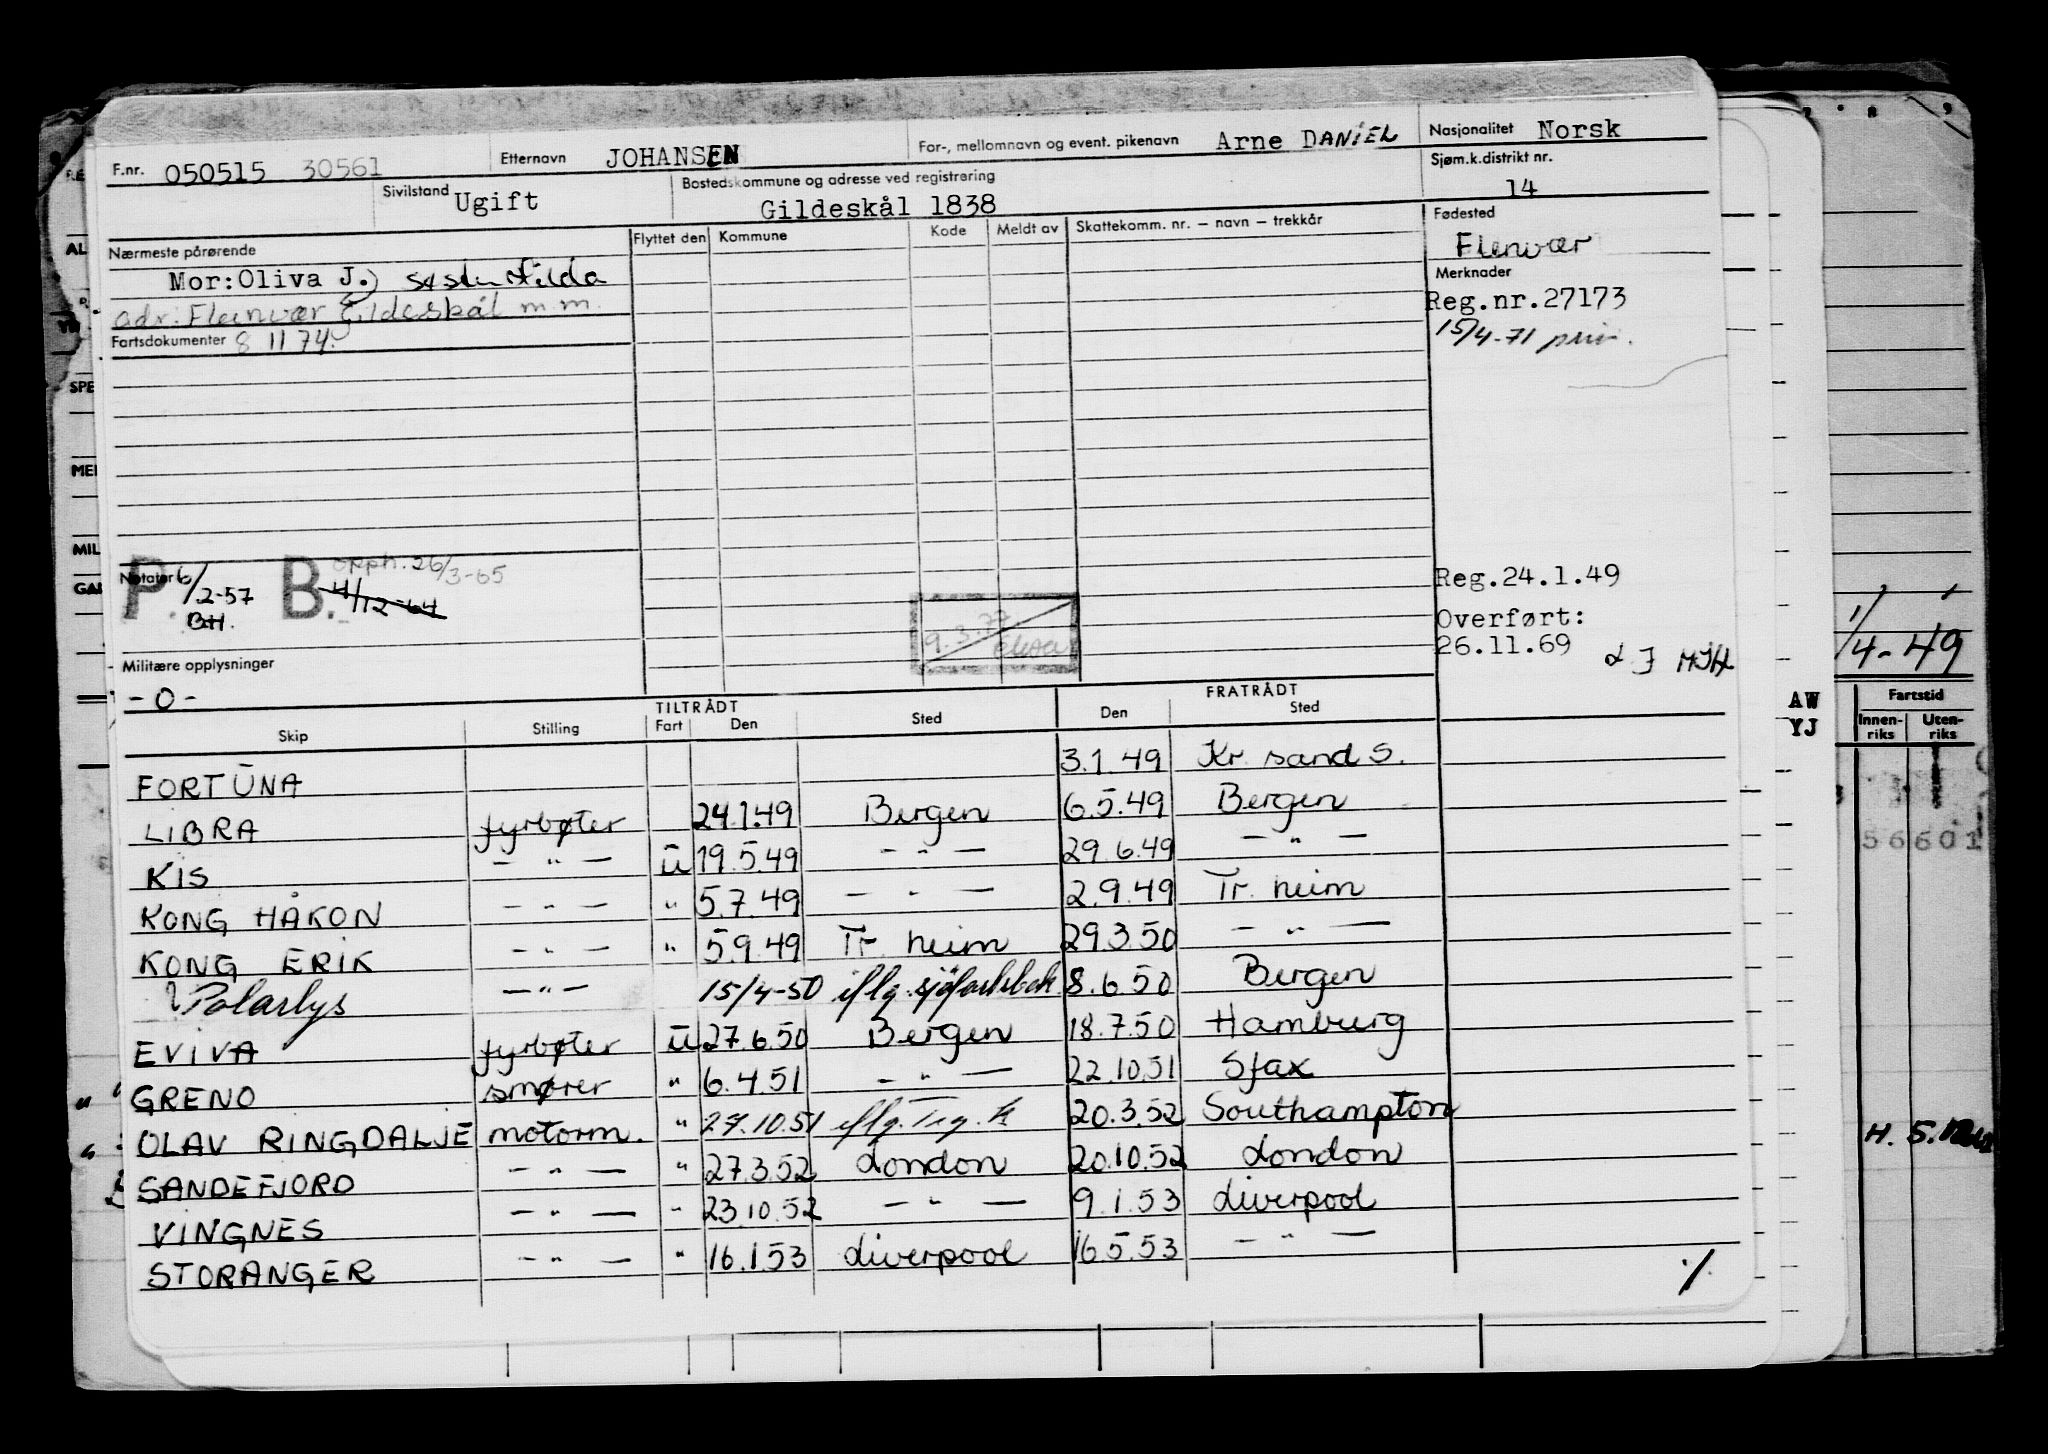 F.nr. 050515 30561 Etternavn JOHANSEN For-, mellomnavn og event. pikenavn Arne DANIEL Nasjonalitet Norsk
Sivilstand Ugift Bostedskommune og adresse ved registrering Gildeskål 1838 Sjøm.k.distrikt nr. 14
Nærmeste pårørende Flyttet den Kommune Kode Meldt av Skattekomm. nr. – navn – trekkår Fødested
Mor: Oliva J. Hilda
adr. Gildeskål m.m.
Fartsdokumenter 8 11 74.
Merknader
Reg.nr.27173
15/4-71
Notater 6/2-57 BH.
P. B. opph. 26/3-65
4/12-64
9.3.77
Reg.24.1.49
Overført:
26.11.69
Militære opplysninger
- 0 -
TILTRÅDT FRATRÅDT
Skip Stilling Fart Den Sted Den Sted
FORTUNA 3.1.49 Kr. sand S.
LIBRA fyrbøter 24.1.49 Bergen 6.5.49 Bergen
KIS — " — U 19.5.49 — " — 29.6.49 — " —
KONG HÅKON — " — " 5.7.49 — " — 2.9.49 Tr. heim
KONG ERIK — " — " 5.9.49 Tr. heim 29.3.50 — " —
Polarlys — " — 15/4-50 iflg. 8.6.50 Bergen
EVIVA fyrbøter U 27.6.50 Bergen 18.7.50 Hamburg
GRENO smører " 6.4.51 — " — 22.10.51 Sfax
OLAV RINGDAL JE motorm. " 27.10.51 iflg. 20.3.52 Southampton
SANDEFJORD — " — " 27.3.52 London 20.10.52 London
VINGNES — " — " 23.10.52 — " — 9.1.53 Liverpool
STORANGER — " — " 16.1.53 Liverpool 16.5.53 — " —
./.
AL
SPE
MIL
1/4-49
AW
YJ
Fartstid
Innen-
riks
Uten-
riks
56601